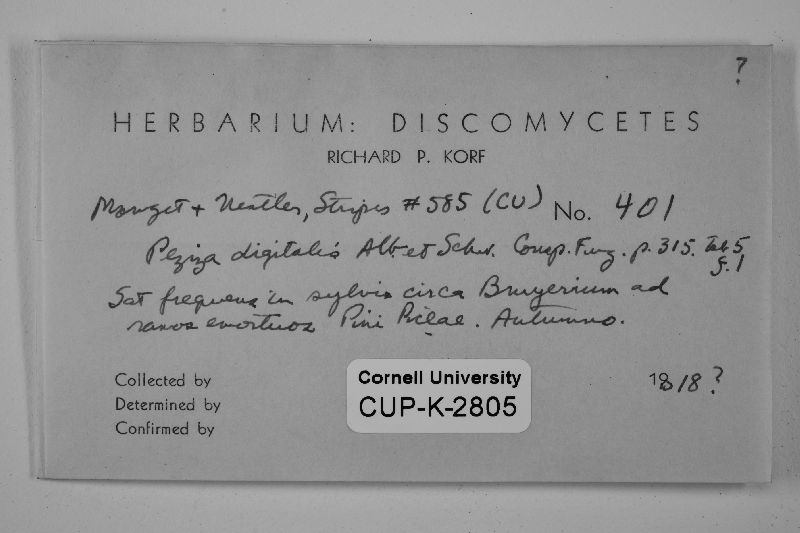 ?
HERBARIUM: DISCOMYCETES
RICHARD P. KORF
Mouget + Nestler, Stirpes #585 (CU) No. 401
Peziza digitalis Alb. et Schw. Consp. Fung. p. 315. Tab 5
f. 1
Sat frequens in sylvis circa Bruyerium ad
ramos emortuos Pini Piceae. Autumno.
Collected by
Determined by
Confirmed by
1818?
Cornell University
CUP-K-2805